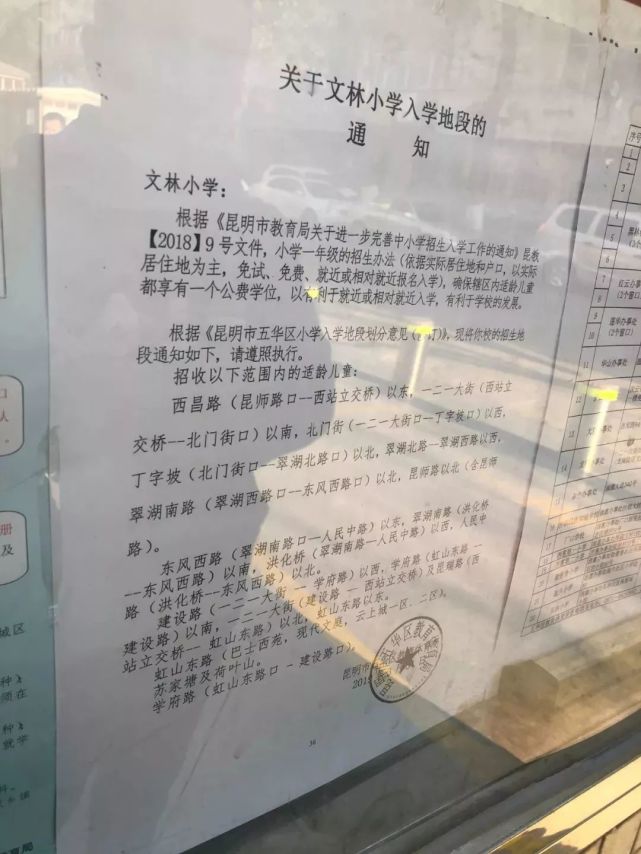 关于文林小学入学地段的
通 知
文林小学：
根据《昆明市教育局关于进一步完善中小学招生入学工作的通知》昆教
【2018】9号文件，小学一年级的招生办法（依据实际居住地和户口，以实际
居住地为主，免试、免费、就近或相对就近报名入学），确保辖区内适龄儿童
都享有一个公费学位，以有利于就近或相对就近入学，有利于学校的发展。
根据《昆明市五华区小学入学地段划分意见（ 订）》，现将你校的招生地
段通知如下，请遵照执行。
招收以下范围内的适龄儿童：
西昌路（昆师路口--西站立交桥）以东，一二一大街（西站立
交桥--北门街口）以南，北门街（一二一大街口—丁字坡口）以西，
丁字坡（北门街口--翠湖北路口）以北，翠湖北路--翠湖西路以西，
翠湖南路（翠湖西路口—东风西路口）以北，昆师路以北（含昆师
路）。
东风西路（翠湖南路口—人民中路）以东，翠湖南路（洪化桥
--东风西路）以南，洪化桥（翠湖南路—人民中路）以西，人民中
路（洪化桥--东风西路）以北。
建设路（一二一大街 — 学府路）以西，学府路（虹山东路 --
建设路）以南，一二一大街（建设路 — 西站立交桥）及昆瑞路（西
站立交桥-- 虹山东路）以北，虹山东路以东。
虹山东路（巴士西苑，现代文庭，云上城一区、二区）。
苏家塘及荷叶山。
学府路（虹山东路口 - 建设路口）。
昆明市
201
36
序号
1
2
3
4
8
9
10
11
12
13
14
(2个窗口)
莲华办事处
(2个窗口)
华山办事处
册
及
城区
种
须在
种
就学